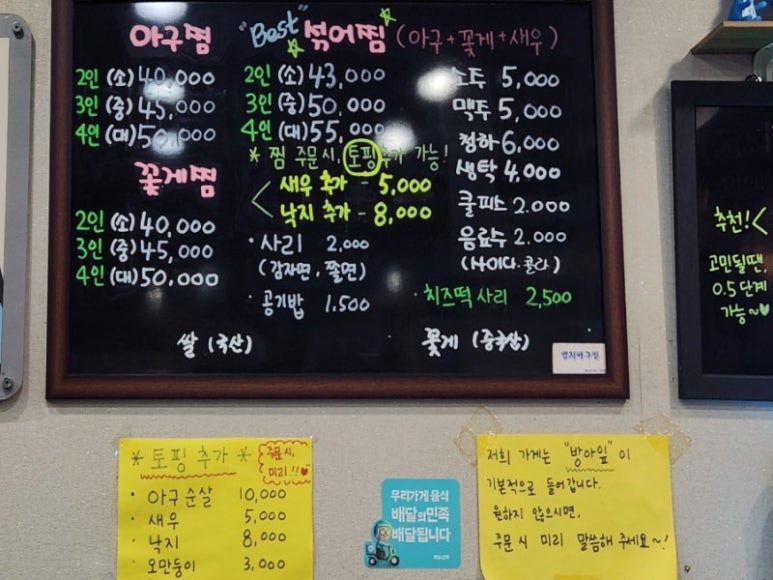 아구찜
2인 (소) 40,000
3인 (중) 45,000
4인 (대) 50,000
꽃게찜
2인 (소) 40,000
3인 (중) 45,000
4인 (대) 50,000
"Best" 섞어찜 (아구+꽃게+새우)
2인 (소) 43,000
3인 (중) 50,000
4인 (대) 55,000
* 찜 주문시, 토핑추가 가능!
새우 추가 - 5,000
낙지 추가 - 8,000
· 사리 2,000
(감자면, 쫄면)
· 공기밥 1,500
소주 5,000
맥주 5,000
청하 6,000
생탁 4,000
쿨피스 2,000
음료수 2,000
(사이다.콜라)
· 치즈떡 사리 2,500
쌀 (국산)
꽃게 (중국산)
추천!
고민될땐,
0.5 단계
가능~
* 토핑 추가 *
주문 시,
미리!!
· 아구순살 10,000
· 새우 5,000
· 낙지 8,000
· 오만둥이 3,000
우리가게 음식
배달의민족
배달됩니다
저희 가게는 "방아잎"이
기본적으로 들어갑니다.
원하지 않으시면,
주문 시 미리 말씀해 주세요~!